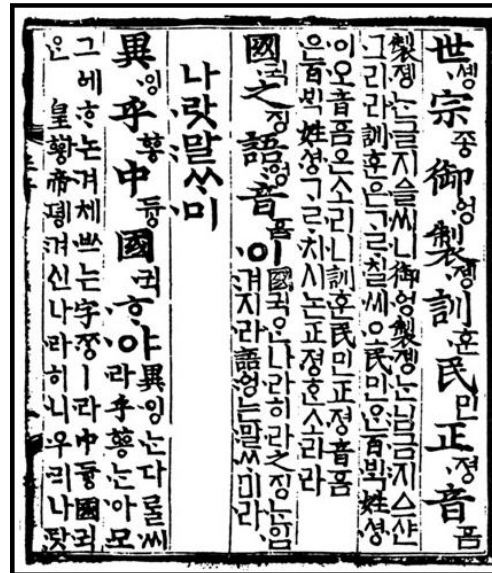 世솅宗조ᇰ御ᅌᅥᆼ製졩訓훈民민正져ᇰ音ᅙᅳᆷ
製졩ᄂᆞᆫ글지ᅀᅳᆯ씨니御ᅌᅥᆼ製졩ᄂᆞᆫ님금지ᅀᅳ샨
그리라訓훈은ᄀᆞᄅᆞ칠씨오民민ᄋᆞᆫ百ᄇᆡᆨ姓셔ᇰ
이오音ᅙᅳᆷ은소리니訓훈民민正져ᇰ音ᅙᅳᆷ
은百ᄇᆡᆨ姓셔ᇰᄀᆞᄅᆞ치시논正져ᇰᄒᆞᆫ소리라
國귁之징語ᅌᅥᆼ音ᅙᅳᆷ이國귁ᄋᆞᆫ나라히라之징ᄂᆞᆫ입
겨지라語ᅌᅥᆼ는말ᄊᆞ미라
나랏말ᄊᆞ미
異잉乎ᅘᅩᆼ中듀ᇰ國귁ᄒᆞ야異잉ᄂᆞᆫ다ᄅᆞᆯ씨
라乎ᅘᅩᆼᄂᆞᆫ아모
그ᅌᅦᄒᆞ논겨체ᄡᅳ는字ᄍᆞᆼㅣ라中듀ᇰ國귁
ᄋᆞᆫ皇ᅘᅪᇰ帝뎽겨신나라히니우리나랏